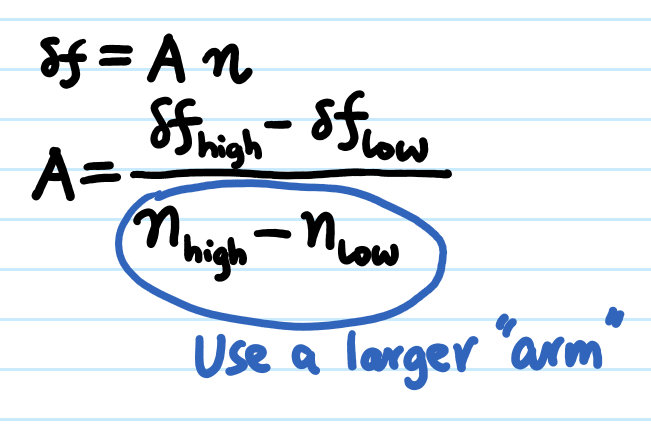 δf = A n
A = (δf_high − δf_low) / (n_high − n_low)
Use a larger "arm"